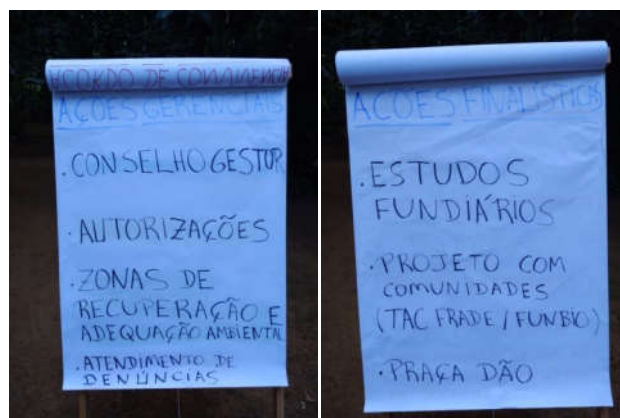 ACORDO DE CONVIVÊNCIA
AÇÕES GERENCIAIS
. CONSELHO GESTOR
. AUTORIZAÇÕES
. ZONAS DE
RECUPERAÇÃO E
ADEQUAÇÃO AMBIENTAL
. ATENDIMENTO DE
DENÚNCIAS
AÇÕES FINALÍSTICAS
. ESTUDOS
FUNDIÁRIOS
. PROJETO COM
COMUNIDADES
(TAC FRADE / FUNBIO)
. PRAÇA DÃO